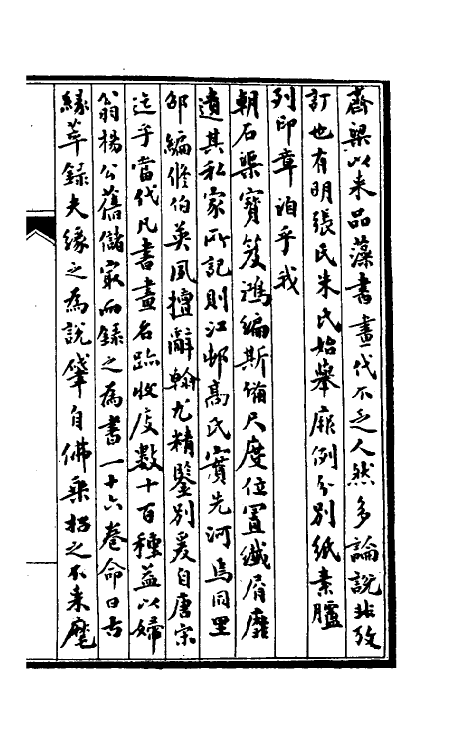 齊梁以来品藻書畫代不乏人然多論說非攷
訂也有明張氏朱氏始舉厥例分別紙素臚
列印章洎乎我
朝石渠寶笈鴻編斯備尺度位置纖屑靡
遺其私家所記則江邨高氏實先河焉同里
邵編修伯英夙擅辭翰尤精鑒別爰自唐宋
迄乎當代凡書畫名跡收庋數十百種益以婦
翁楊公舊儲裒而錄之為書一十六卷命曰古
緣萃錄夫緣之為說肇自佛乘招之不来麾